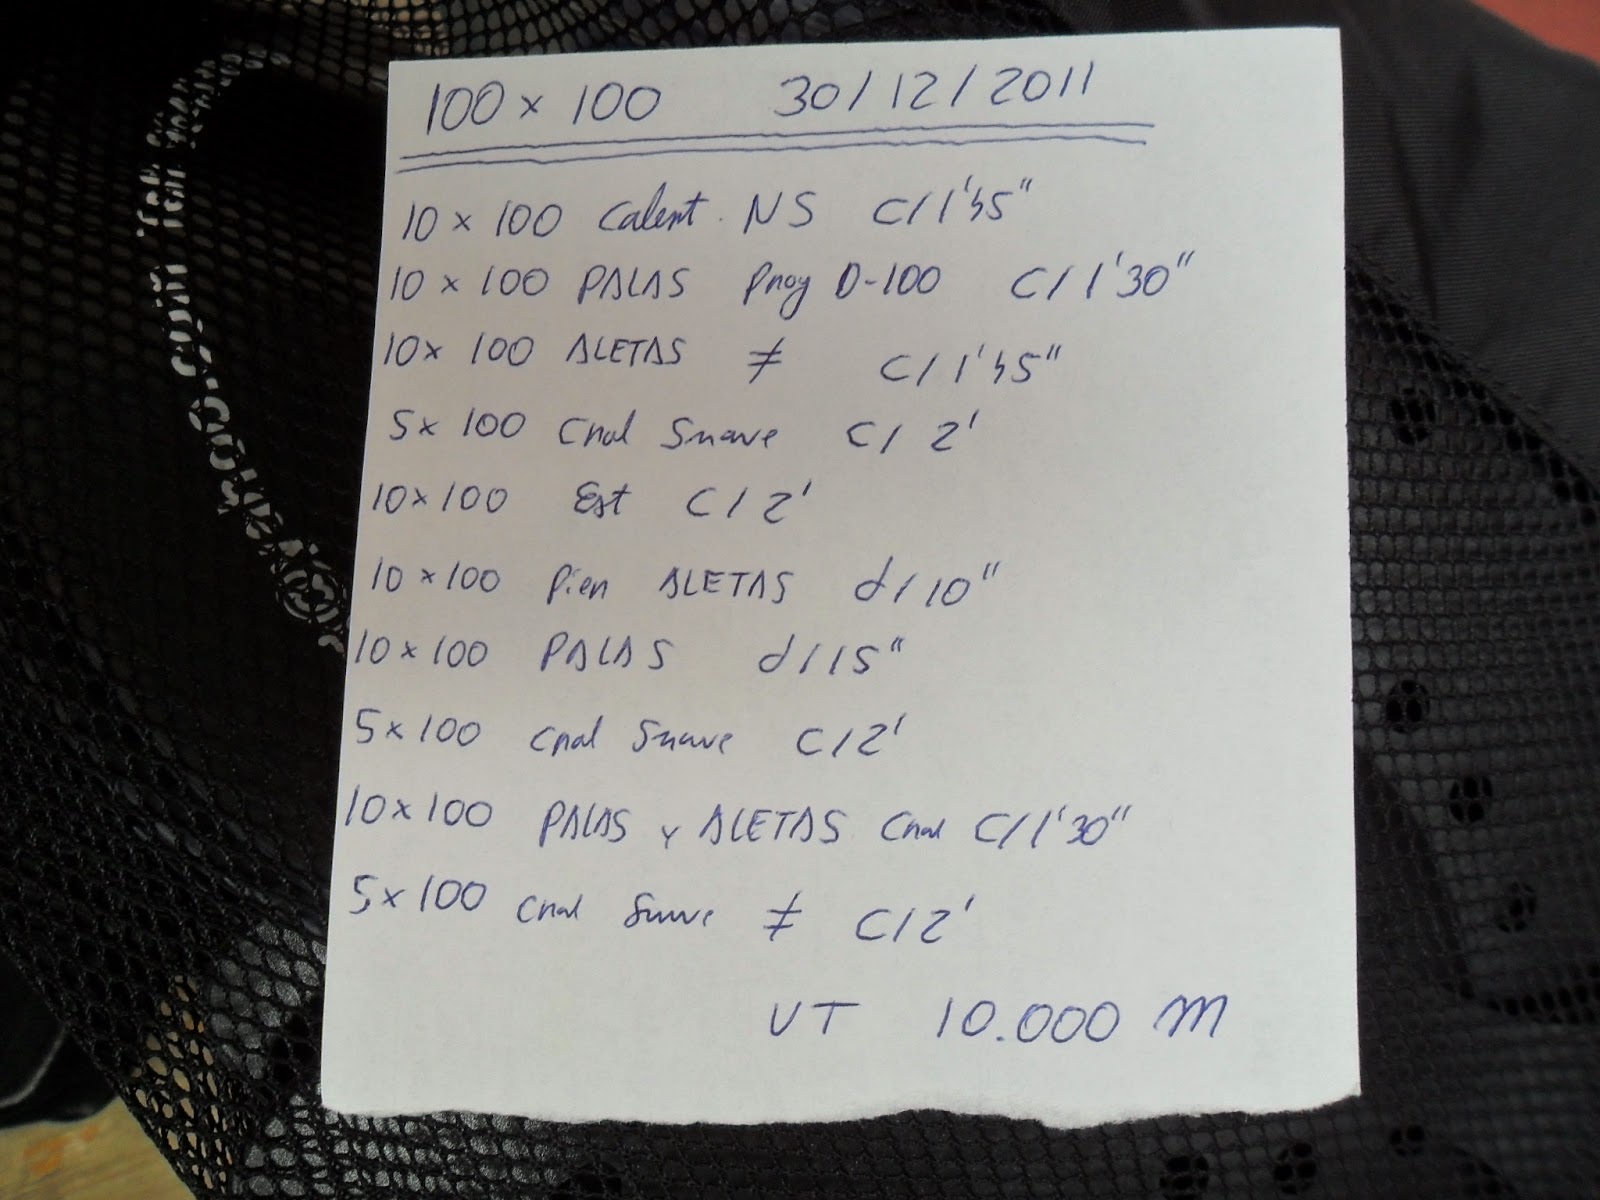 100 x 100 30/12/2011
10 x 100 Calent. NS C/1'45"
10 x 100 PALAS Prog D-100 C/1'30"
10 x 100 ALETAS ≠ C/1'45"
5 x 100 Cral Suave C/2'
10 x 100 Est C/2'
10 x 100 Pier ALETAS d/10"
10 x 100 PALAS d/15"
5 x 100 Cral Suave C/2'
10 x 100 PALAS Y ALETAS Cral C/1'30"
5 x 100 Cral Suave ≠ C/2'
VT 10.000 m